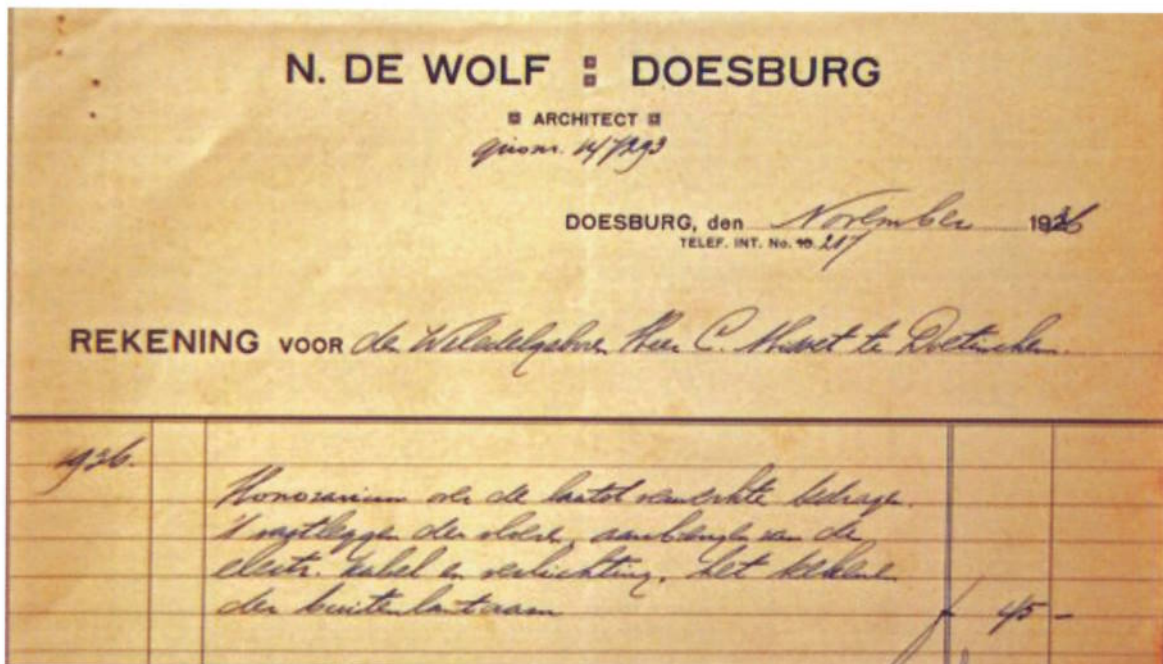 N. DE WOLF DOESBURG
ARCHITECT
gironr. 147293
DOESBURG, den November 1936
TELEF. INT. No. 10. 217
REKENING VOOR den Weledelgeboren Heer C. Misset te Doetinchem.
1936.
Honorarium over de laatst verwerkte bedragen.
't vastleggen der vloeren, aanbrengen van de
electr. kabel en verlichting, het
der buitenlantaarn f 45 -